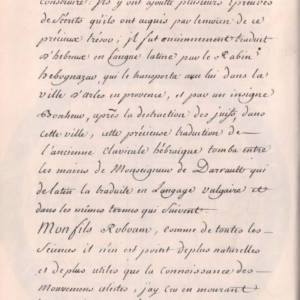 construire. Ils y ont ajouté plusieurs Epreuves
de Secrets qu'ils ont aquis par le moien de ce
précieux trésor; jl fut ancienement traduit
d'hébreux en Langue latine par le Rabin
hebognazar qui le transporta avec lui dans la
ville d'arles en provence, et par un insigne
Bonheur, après la destruction des juifs, dans
cette ville, cette précieuse traduction de
l'ancienne Clavicule hébraïque tomba entre
les mains de Monseigneur de Barrault qui
de latin la traduite en Langage vulgaire et
dans les mêmes termes qui suivent.
Mon fils Roboam, comme de toutes les
Sciences il n'en est point de plus naturelles
et de plus utiles que la connoissance des
Mouvemens celestes, jay cru en mourant